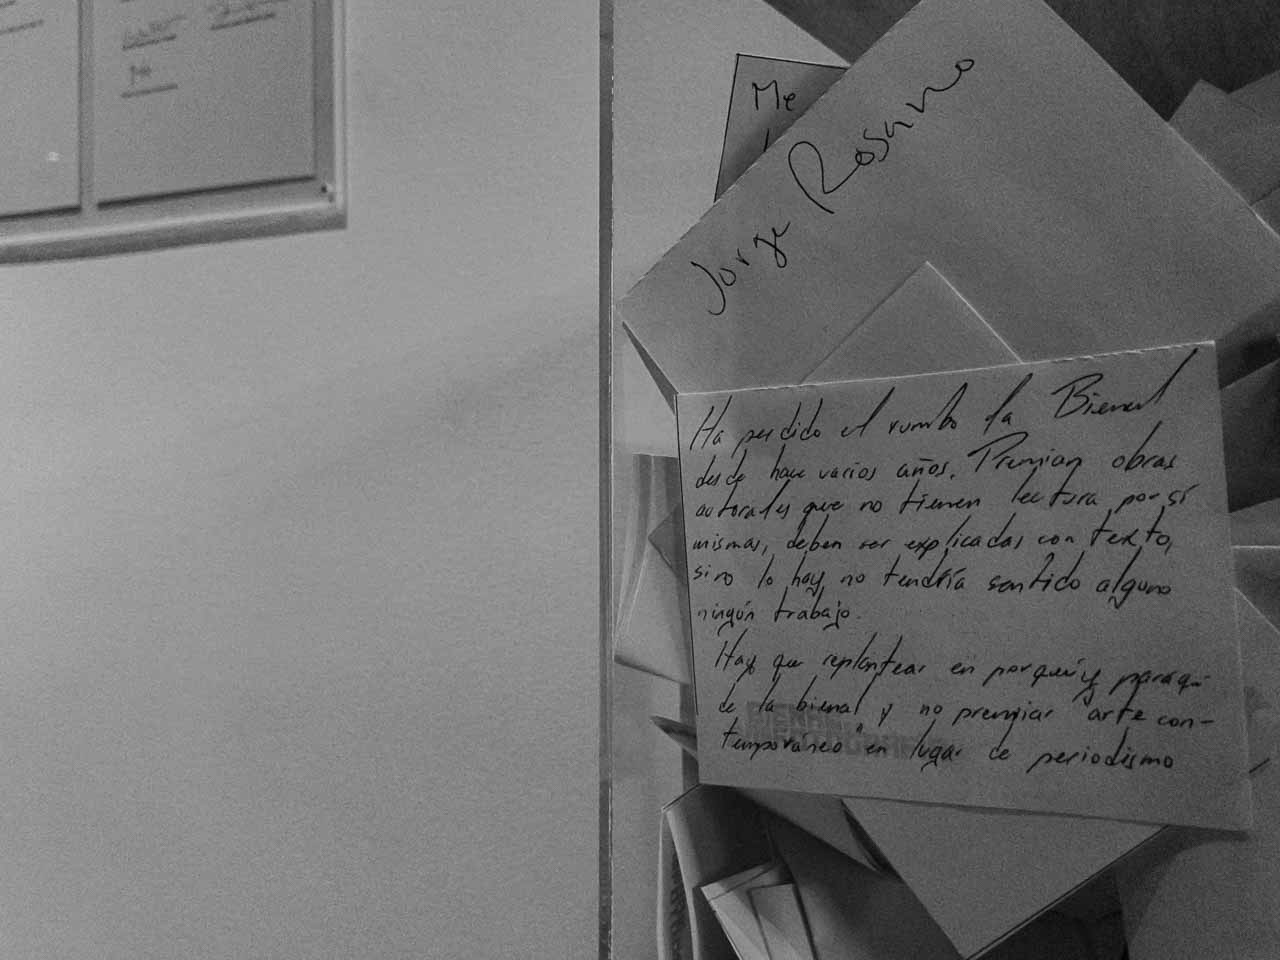 Me
Jorge Rosano
Ha perdido el rumbo la Bienal
desde hace varios años. Premian obras
autorales que no tienen lectura por sí
mismas, deben ser explicadas con texto,
si no lo hay no tendría sentido alguno
ningún trabajo.
Hay que replantear en porqué y para qué
de la bienal y no premiar "arte con-
temporáneo" en lugar de periodismo